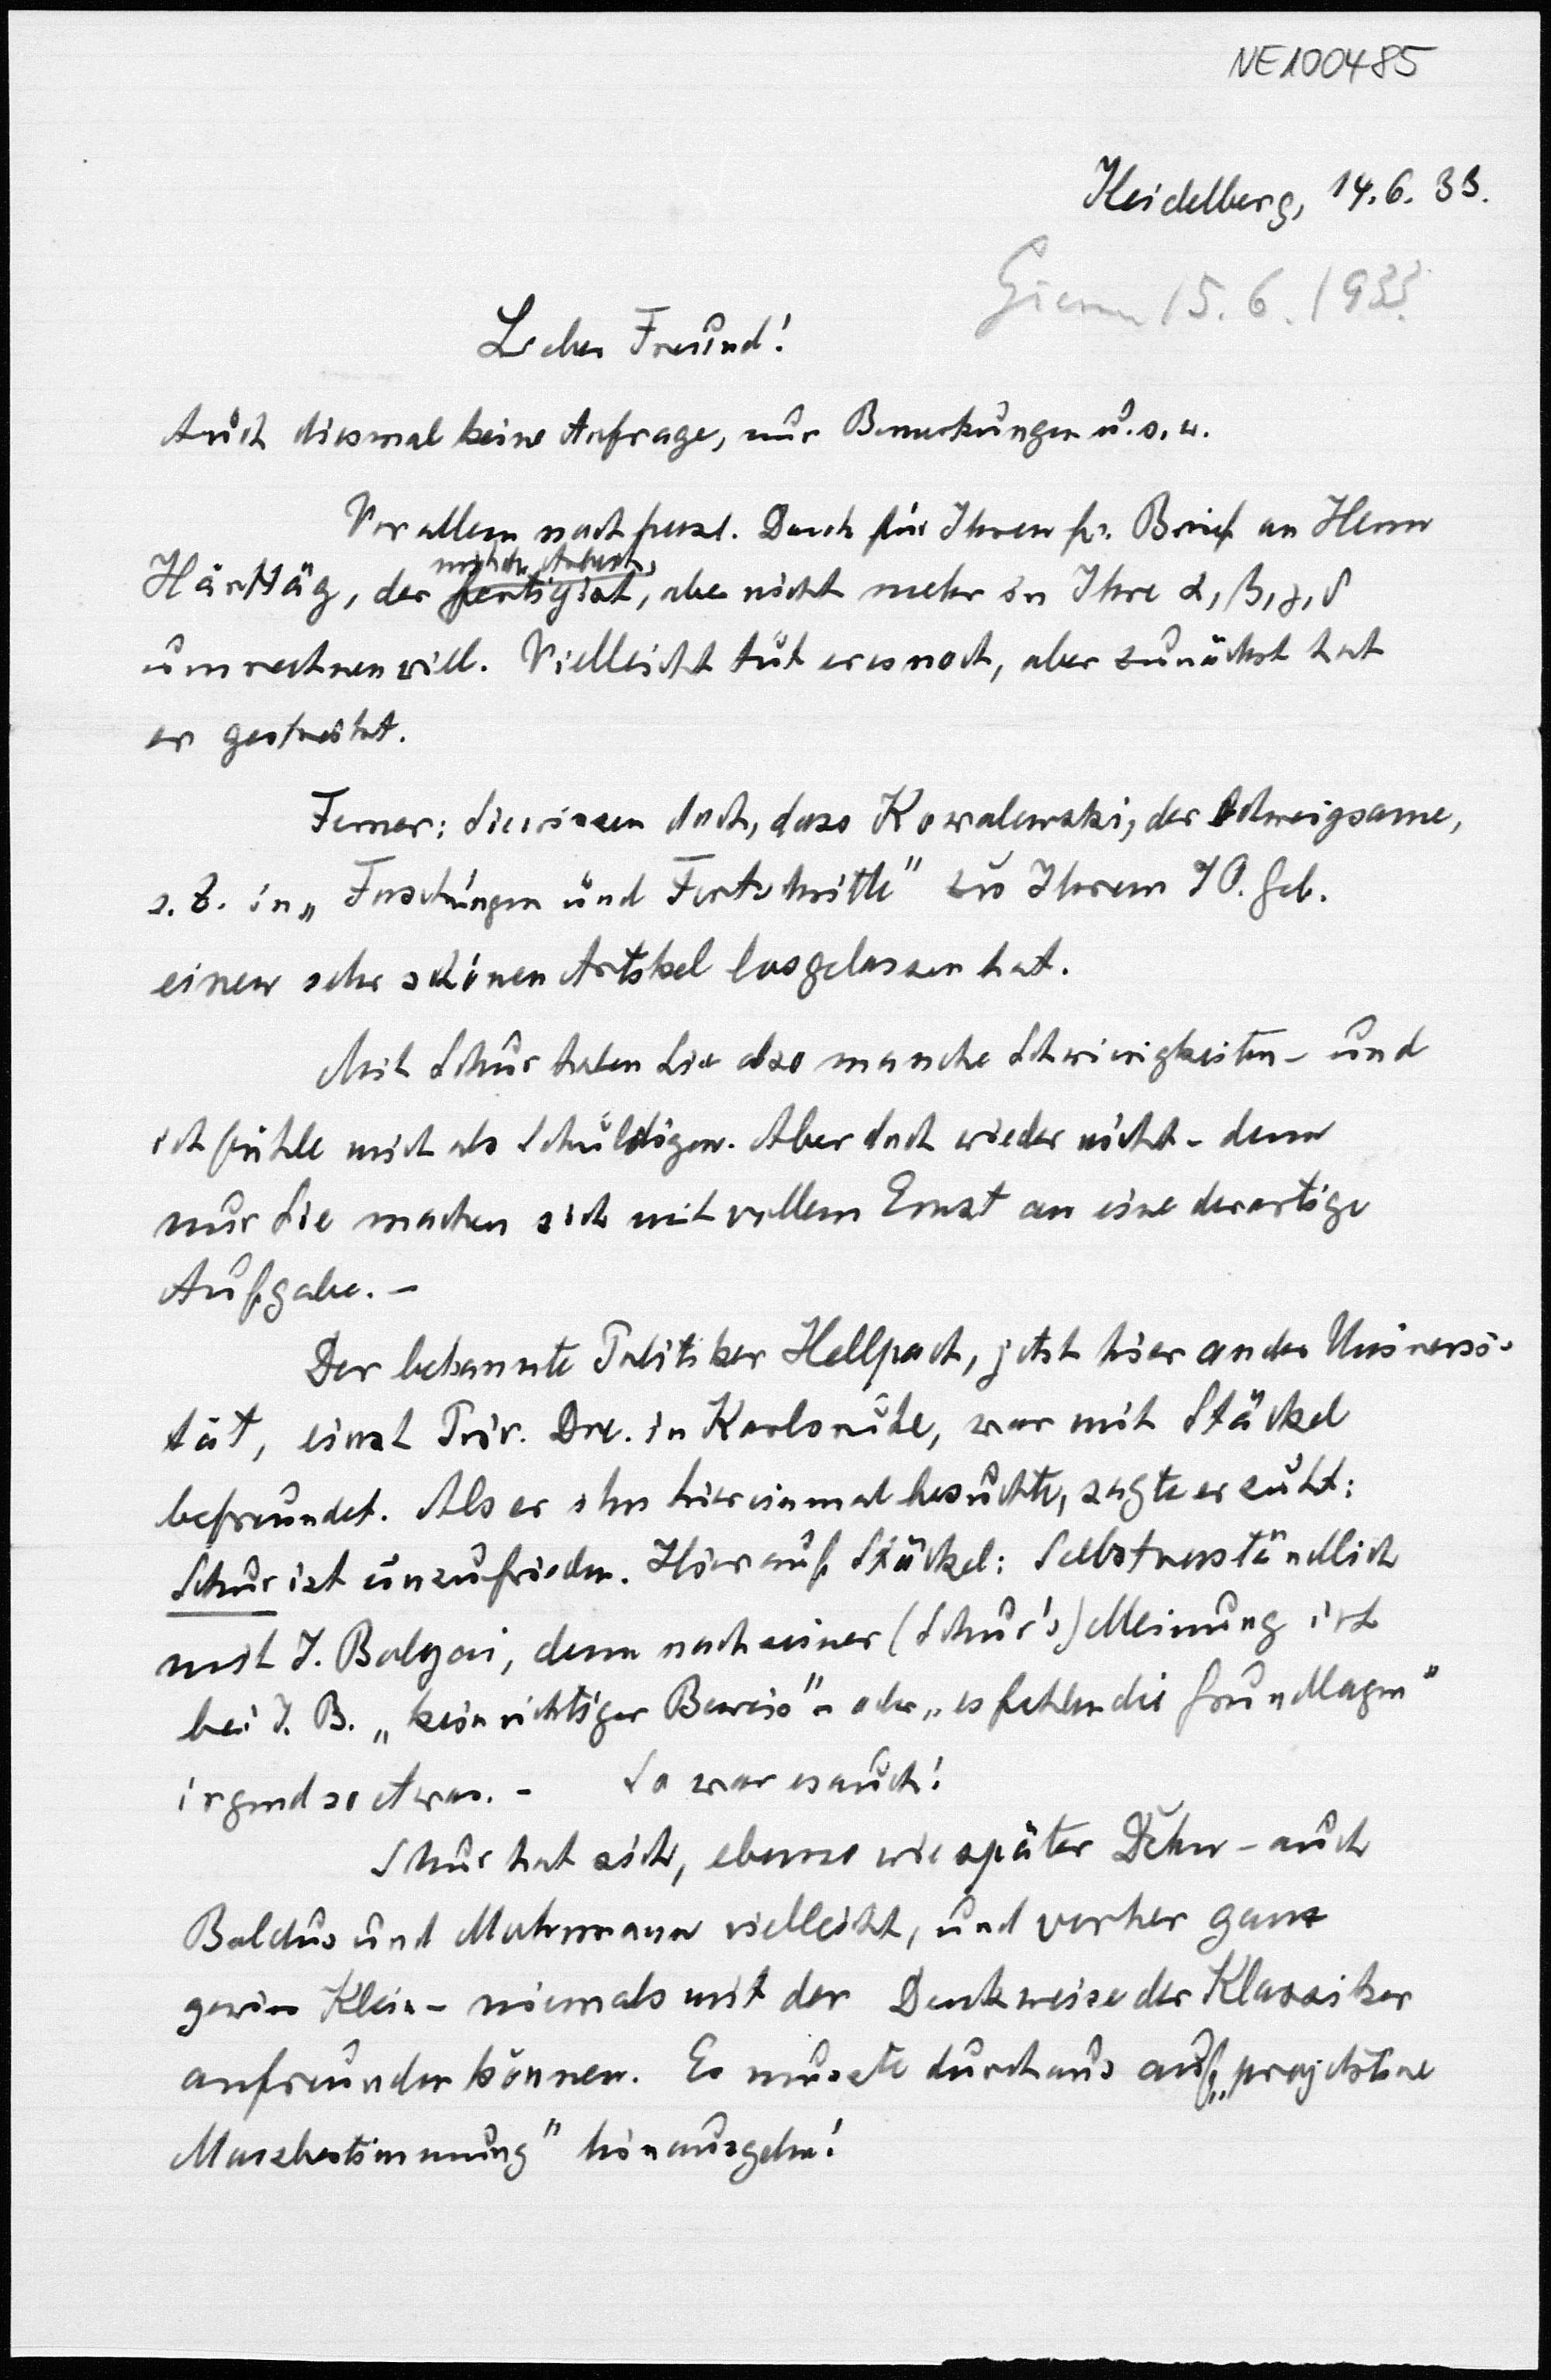 NE100485
Heidelberg, 14. 6. 33.
Giessen 15. 6. 1933.
Lieber Freund!
Auch diesmal keine Anfrage, nur Bemerkungen u. s. w.
Vor allem noch herzl. Dank für Ihren fr. Brief an Herrn
mit der Arbeit
Härttäg, der fertig ist, aber nicht mehr in Ihre α, β, γ, δ
umrechnen will. Vielleicht tut er es noch, aber zunächst hat
er gestreikt.
Ferner: Sie wissen doch, dass Kowalewski, der Schweigsame,
s. Z. in „Forschungen und Fortschritte" zu Ihrem 70. Geb.
einen sehr schönen Artikel losgelassen hat.
Mit Schur haben Sie also manche Schwierigkeiten – und
ich fühle mich als Schuldigen. Aber doch wieder nicht – denn
nur Sie machen sich mit vollem Ernst an eine derartige
Aufgabe. –
Der bekannte Politiker Hellpach, jetzt hier an der Universi-
tät, einst Priv. Doz. in Karlsruhe, war mit Stäckel
befreundet. Als er ihn hier einmal besuchte, sagte er zu St:
Schur ist unzufrieden. Hierauf Stäckel: Selbstverständlich
mit J. Bolyai, denn nach seiner (Schur's) Meinung ist
bei J. B. „kein richtiger Beweis" – oder „es fehlen die Grundlagen"
irgend so etwas. – So war es auch!
Schur hat sich, ebenso wie später Dehn – auch
Baldus und Mohrmann vielleicht, und vorher ganz
gewiss Klein – niemals mit der Denkweise der Klassiker
anfreunden können. Es musste durchaus auf „projektive
Maszbestimmung" hinausgehn!